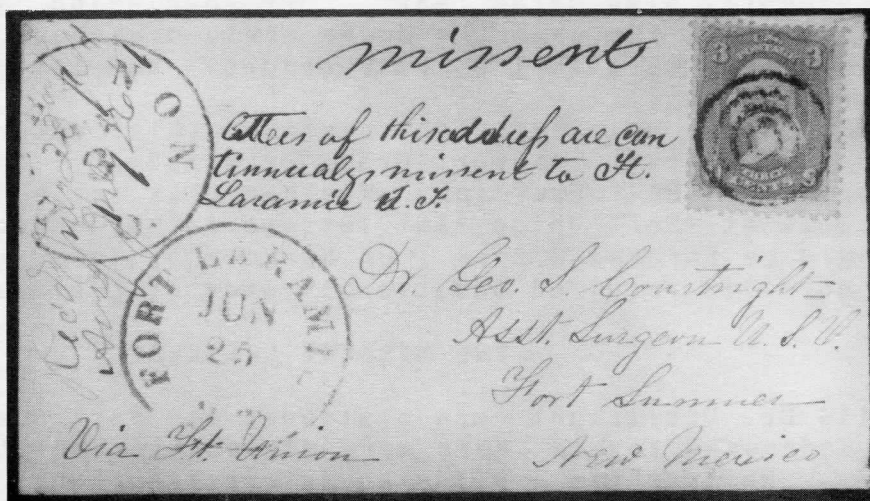 missent
letters of this address are con
tinnualy missent to Ft.
Laramie I. T.
3 3
FORT LARAMIE
JUN
25
Dr. Geo. S. Courtright
Asst. Surgeon U. S. V.
Fort Sumner
New Mexico
Via Ft. Union